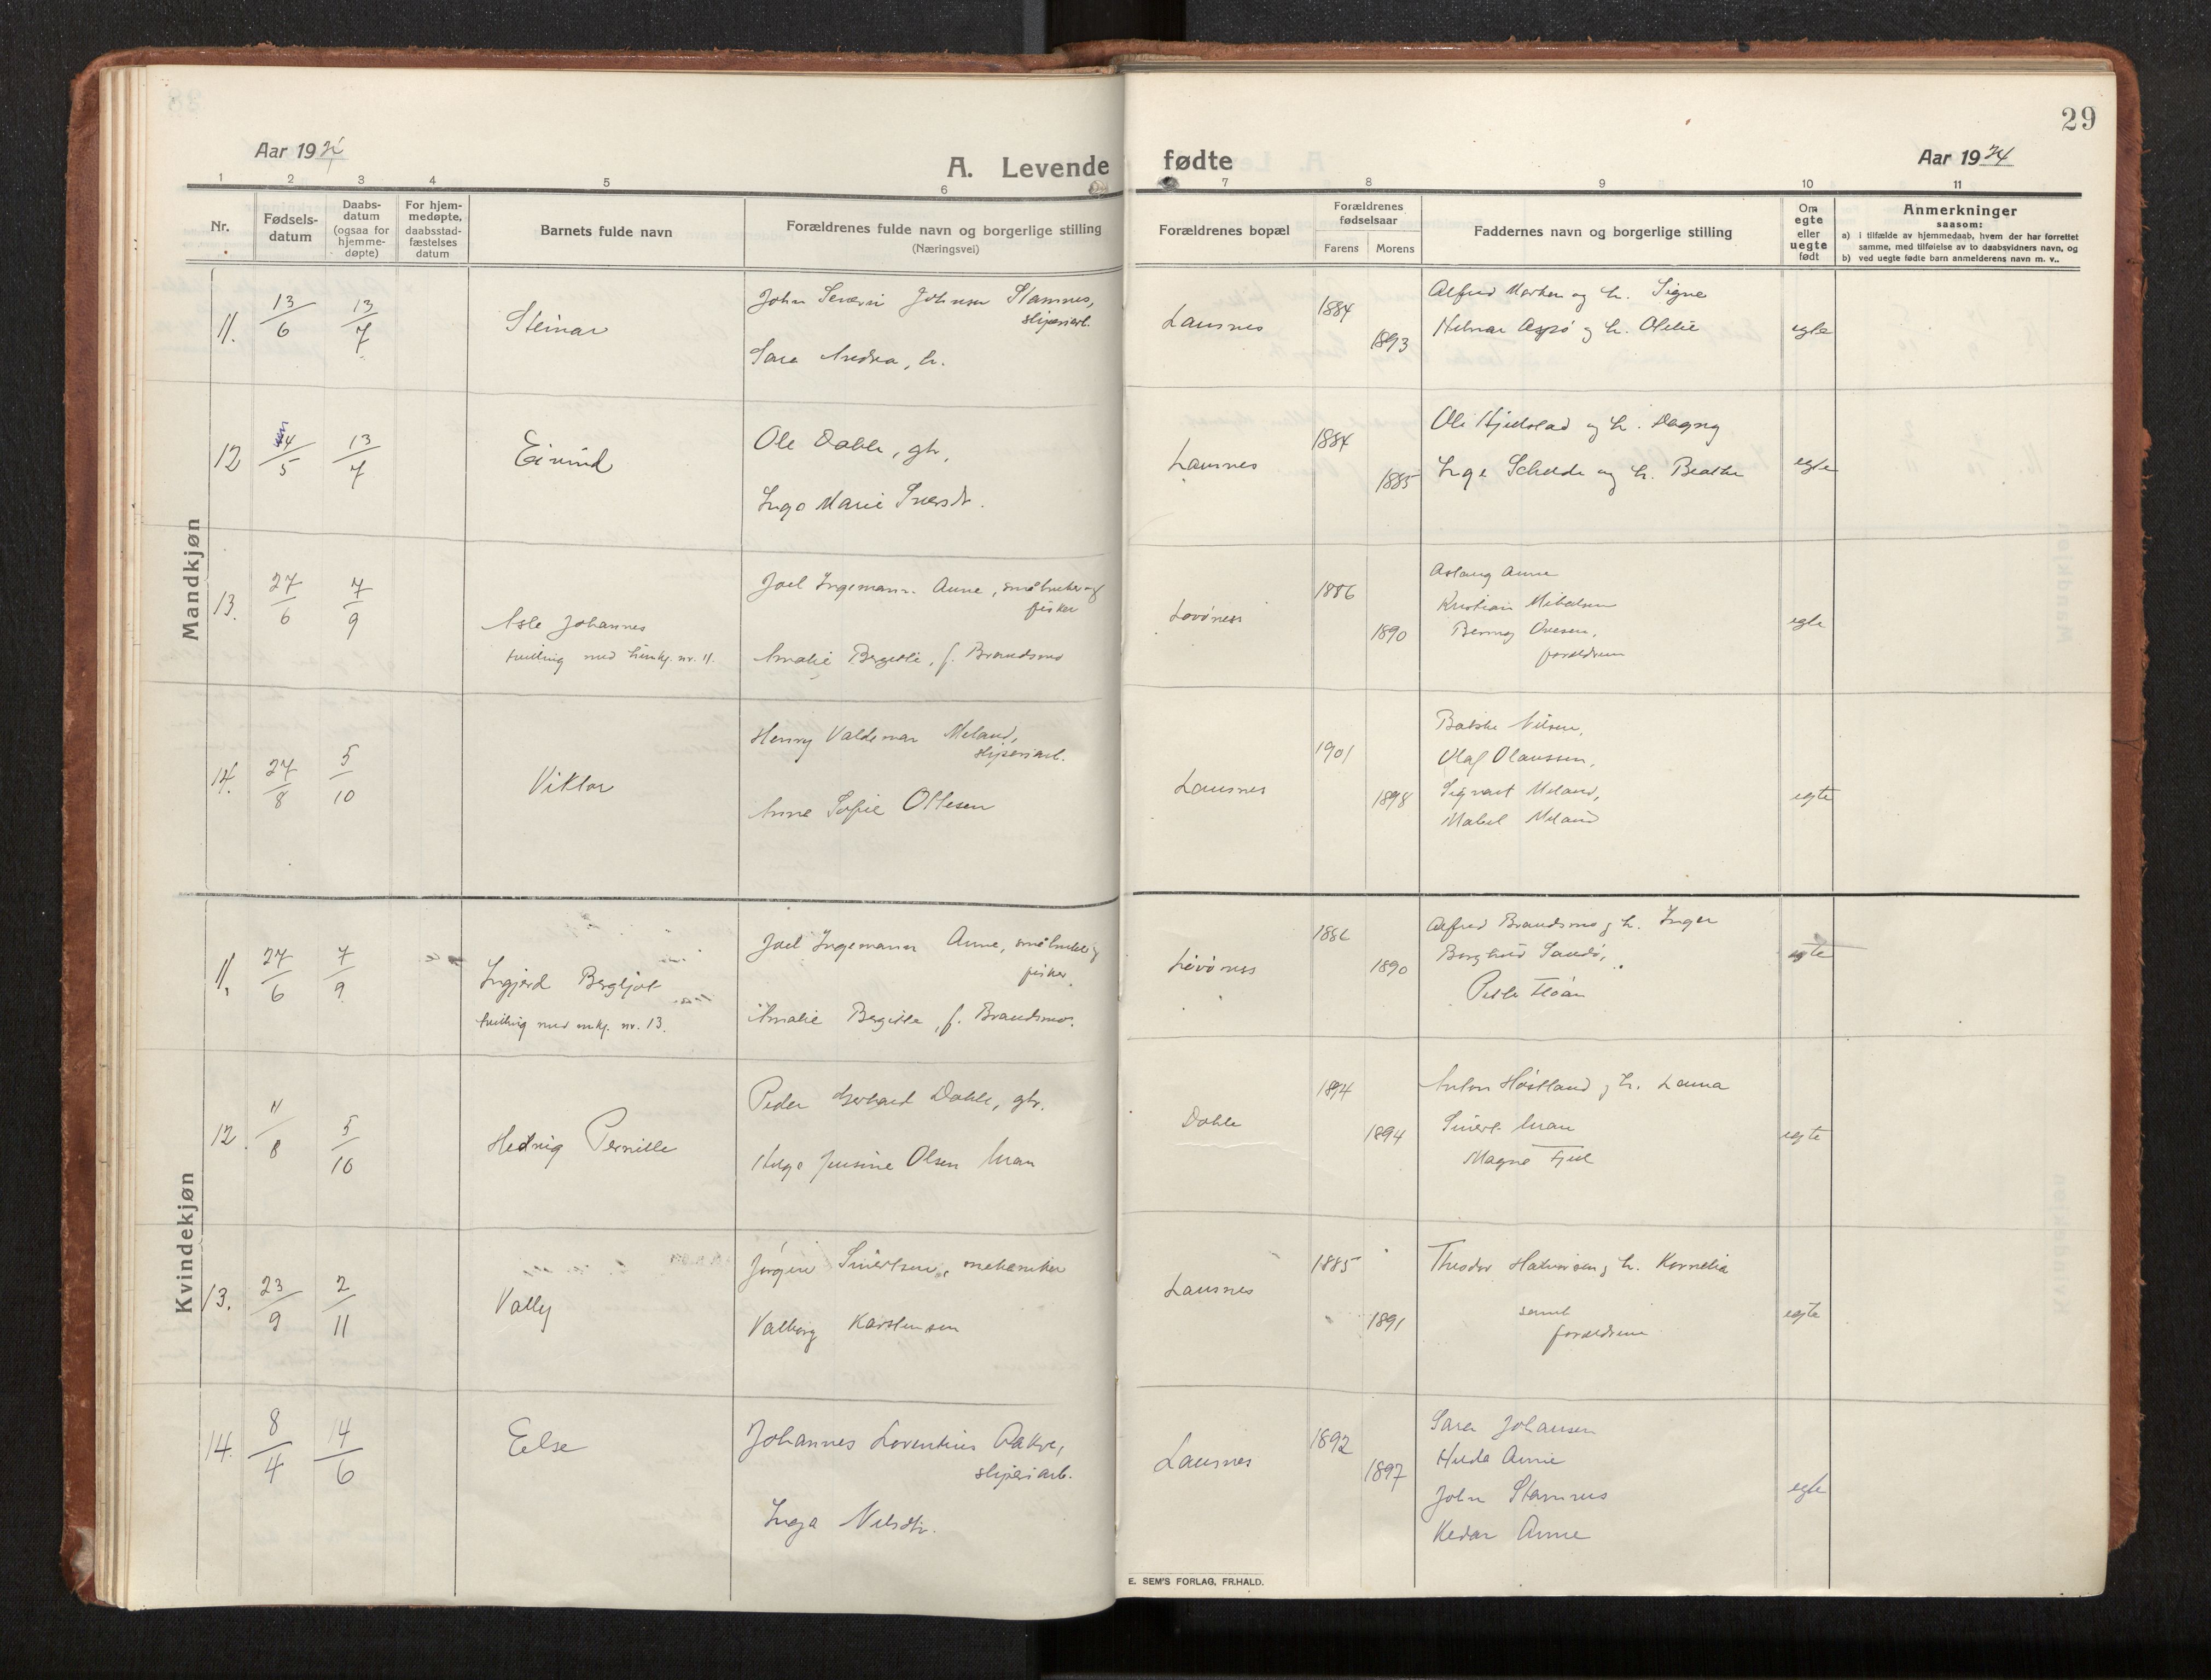 29
Aar 1924
A. Levende
fødte
Aar 1924
1 2 3 4 5 6 7 8 9 10 11
Nr.
Fødsels-
datum
Daabs-
datum
(ogsaa for
hjemme-
døpte)
For hjem-
medøpte,
daabsstad-
fæstelses
datum
Barnets fulde navn
Forældrenes fulde navn og borgerlige stilling
(Næringsvei)
Forældrenes bopæl
Forældrenes
fødselsaar
Farens Morens
Faddernes navn og borgerlige stilling
Om
egte
eller
uegte
født
Anmerkninger
saasom:
a) i tilfælde av hjemmedaab, hvem der har forrettet
samme, med tilføielse av to daabsvidners navn, og
b) ved uegte fødte barn anmelderens navn m. v..
Mandkjøn
11. 13/6 13/7 Steinar
John Severin Johnsen Stamnes,
sliperiarb.
Sara Andrea, h.
Lausnes 1884 1893
Alfred og h. Signe
Hilmar Aspø og h. Ofelie
egte
12 4/5 13/7 Eivind
Ole Dahle, gbr.
Inga Marie Sversdr.
Lausnes 1884 1885
Ole Hjelstad og h. Dagny
Inge Schelde og h. Beathe
egte
13. 27/6 7/9
Asle Johannes
tvilling med kvinkj. nr. 11.
Joel Ingemann Aune, småbruker og
fisker
Amalie Bergitte, f. Brandsmo
Lovönes 1886 1890
Aslaug Aune
Kristian Mikalsen
Ovesen,
foreldrene
egte
14. 27/8 5/10 Viktor
Henry Valdemar Meland,
sliperiarb.
Anne Sofie Ottesen
Lausnes 1901 1898
Nilsen,
Olaf Olaussen,
Sigvart Meland,
Mabel Meland
egte
Kvindekjøn
11. 27/6 7/9
Ingjerd Bergljot
tvilling med mkj. nr. 13.
Joel Ingemann Aune, småbruker og
fisker
Amalie Bergitte, f. Brandsmo.
Lövönes 1886 1890
Alfred Brandsmo og h. Inger
Borghild Sandö,
Petter Floan
egte
12. 11/8 5/10 Hedvig Pernille
Peder Gerhard Dahle, gbr.
Helga Jensine Olsen Kvan
Dahle 1894 1894
Anton Höstland og h. Laura
Sivert Kvan
Magne Fjel
egte
13. 23/9 2/11 Vally
Jörgen Sivertsen, mekaniker
Valborg Karstensen
Lausnes 1885 1891
Theodor Halvorsen og h. Kornelia
samt
foreldrene
egte
14. 8/4 14/6 Eelse
Johannes Laurentius Aakre,
sliperiarb.
Inga Nilsdtr.
Lausnes 1892 1897
Sara Johansen
Hilda Aune
John Stamnes
Kedar Aune
egte
E. SEM'S FORLAG, FR.HALD.